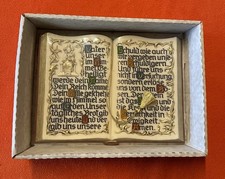 Vater
unser
im Him
mel Ge
heiligt
werde dein Name
Dein Reich komme
Dein Wille geschehe
wie im Himmel so
auf Erden Unser
tägliches Brot gib
uns heute Und ver
gib uns unsere
Schuld wie auch
wir vergeben unse
ren Schuldigern
Und führe uns
nicht in Versuchung
sondern erlöse
uns von dem
Denn dein ist das
Reich und die
Ewigkeit
Amen.